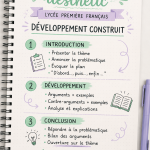 aesthetic
LYCÉE PREMIÈRE FRANÇAIS
DÉVELOPPEMENT CONSTRUIT
1 INTRODUCTION
- Présenter le thème
- Annoncer la problématique
- Évoquer le plan
- "D'abord... puis... enfin..."
2 DÉVELOPPEMENT
- Arguments + exemples
- Contre-arguments + exemples
- Analyse et explications
3 CONCLUSION
- Répondre à la problématique
- Bilan des arguments
- Ouverture sur le thème